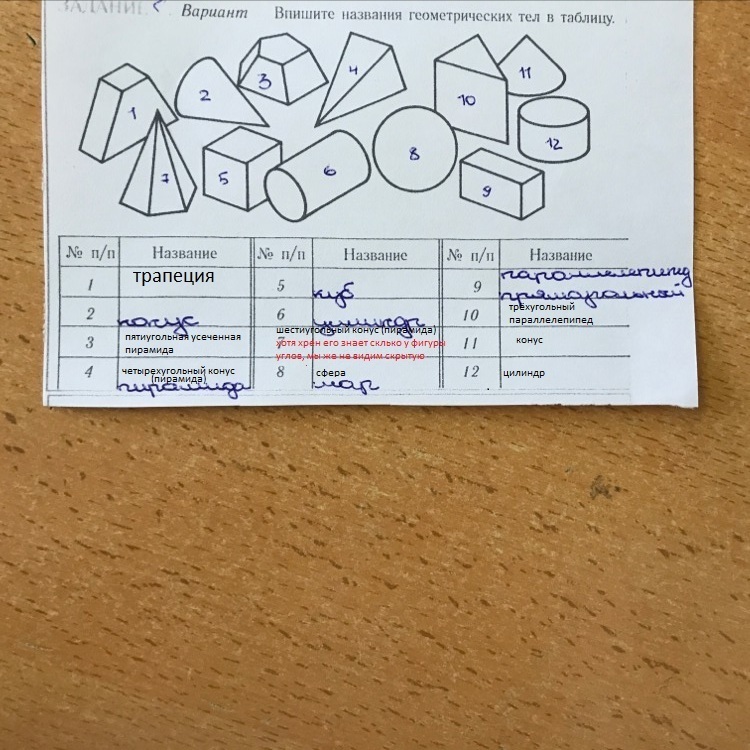 ЗАДАНИЕ Вариант Впишите названия геометрических тел в таблицу.
1 2 3 4 10 11
7 5 6 8 9 12
№ п/п Название № п/п Название № п/п Название
1 трапеция 5 куб 9 параллелепипед
прямоугольный
2 конус 6 цилиндр 10 трёхугольный
параллелепипед
3 пятиугольная усеченная
пирамида
7 шестиугольный конус (пирамида)
хотя хрен его знает склько у фигуры
углов, мы же не видим скрытую
11 конус
4 четырехугольный конус
(пирамида)
пирамида
8 сфера
шар
12 цилиндр